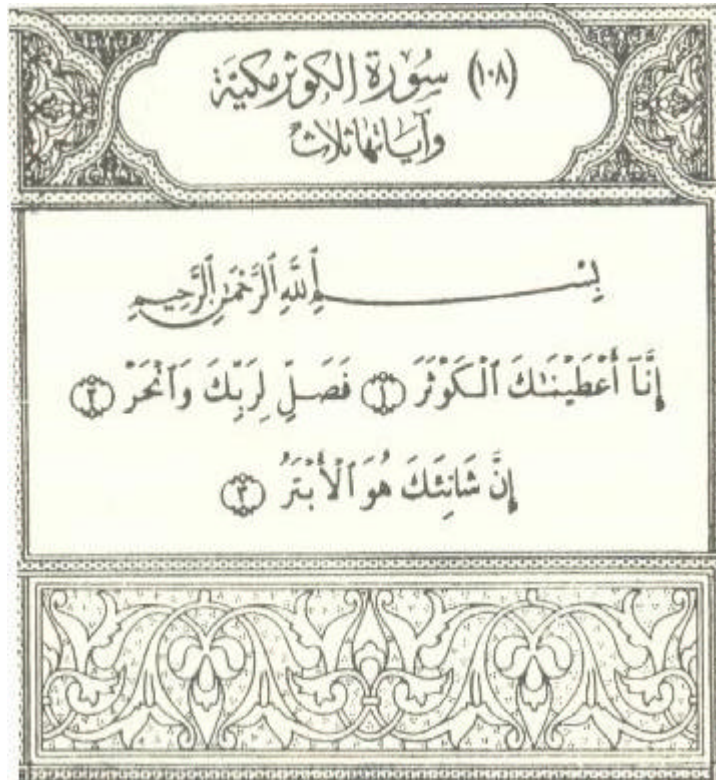 (١٠٨) سُورَة الكَوثر مكيَّة
وآياتها ثلاث
بِسْمِ ٱللَّهِ ٱلرَّحْمَٰنِ ٱلرَّحِيمِ
إِنَّآ أَعْطَيْنَٰكَ ٱلْكَوْثَرَ ۝١ فَصَلِّ لِرَبِّكَ وَٱنْحَرْ ۝٢
إِنَّ شَانِئَكَ هُوَ ٱلْأَبْتَرُ ۝٣